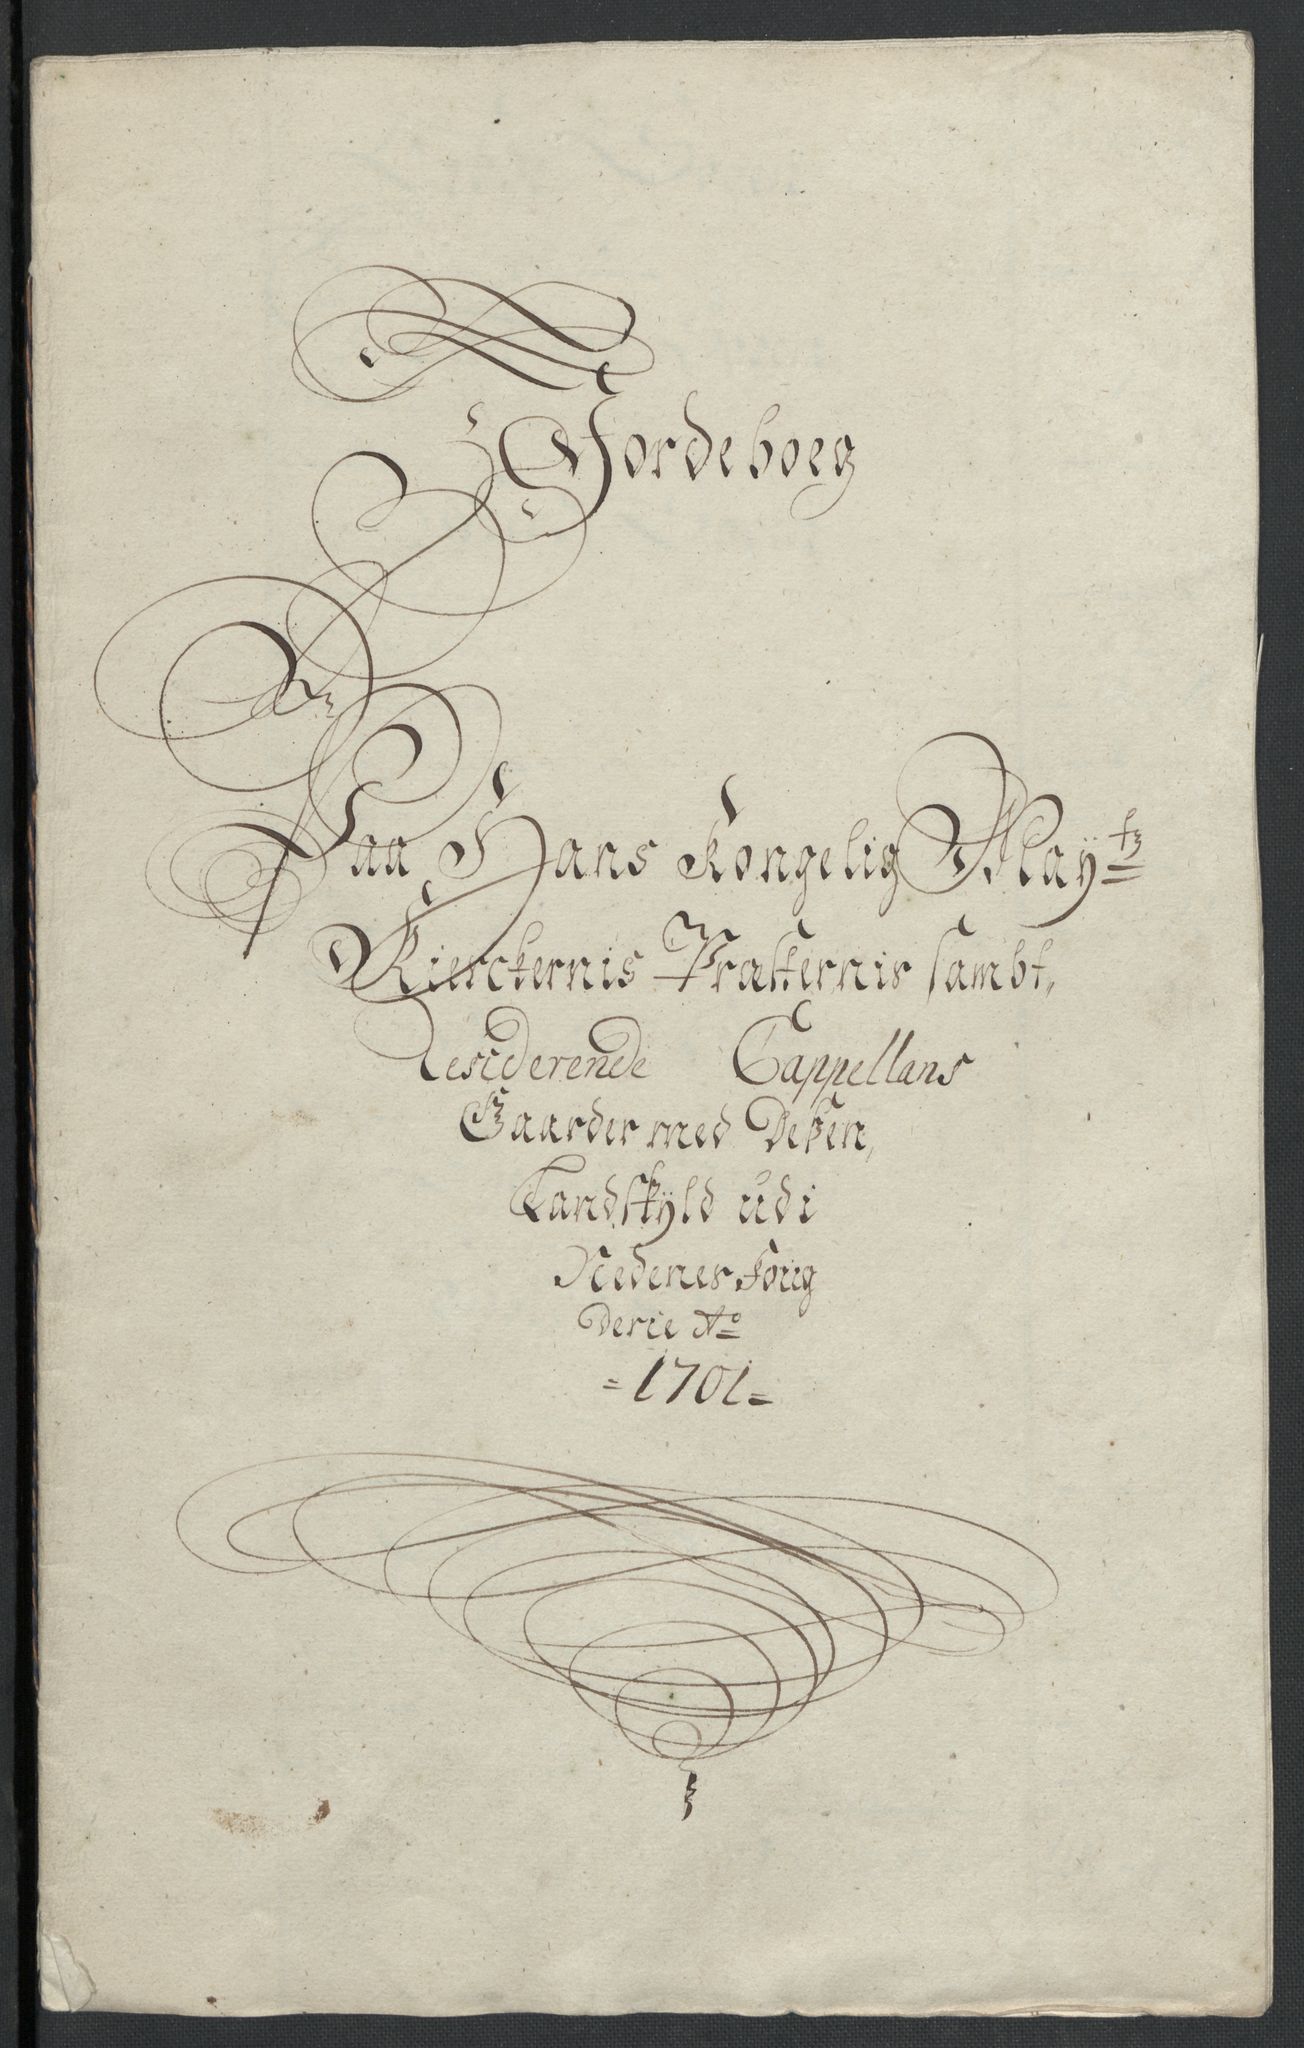 Jordeboeg
Paa Hans Kongelig Mayts
Kierckernis Præsternis sambt,
Residerende Cappellans
Gaarder med Deßen,
Landskyld udi
Nedenes Foug
Derie Ao
= 1701 =